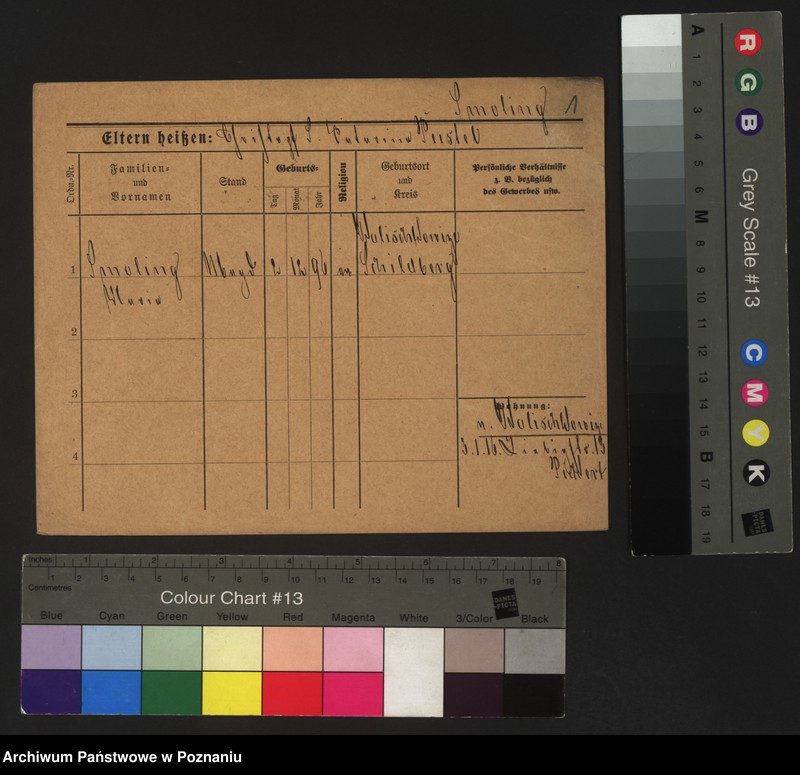 Smoling 1
Eltern heißen: Christof
Ordn.-Nr.
Familien- und Vornamen
Stand
Geburts-
Tag
Monat
Jahr
Religion
Geburtsort und Kreis
Persönliche Verhältnisse
z. B. bezüglich
des Gewerbes usw.
1
Smoling
Maria
Magd
2
12
96
Schildberg
2
3
4
Wohnung:
n.
3.1.16.
13
A 1 2 3 4 5 6 M 8 9 10 11 12 13 14 15 B 17 18 19
R G B
Grey Scale #13
C M Y K
DANES
PICTA
Inches 1 2 3 4 5 6 7 8
Centimetres 1 2 3 4 5 6 7 8 9 10 11 12 13 14 15 16 17 18 19
Colour Chart #13
DANES
PICTA
Blue Cyan Green Yellow Red Magenta White 3/Color Black
Archiwum Państwowe w Poznaniu